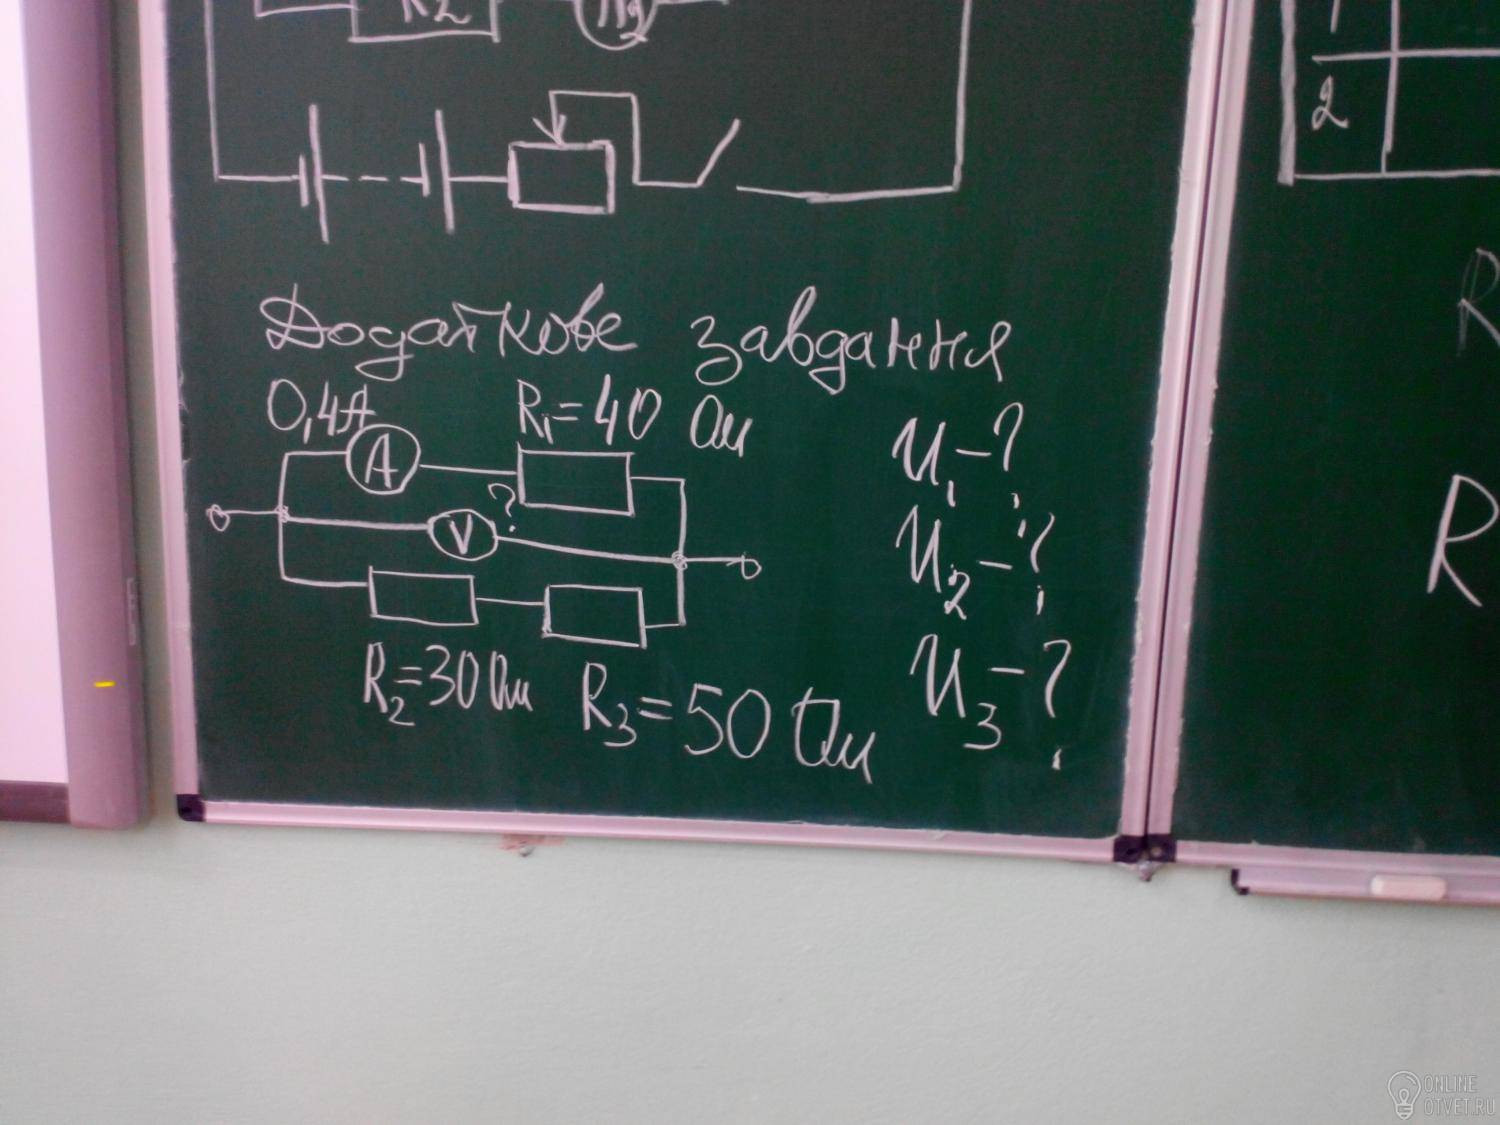 R2
A2
1
2
Додаткове завдання
0,4А
R1=40 Ом
A
?
V
R2=30 Ом
R3=50 Ом
U1-?
U2-?
U3-?
R
R
ONLINE
OTVET.RU